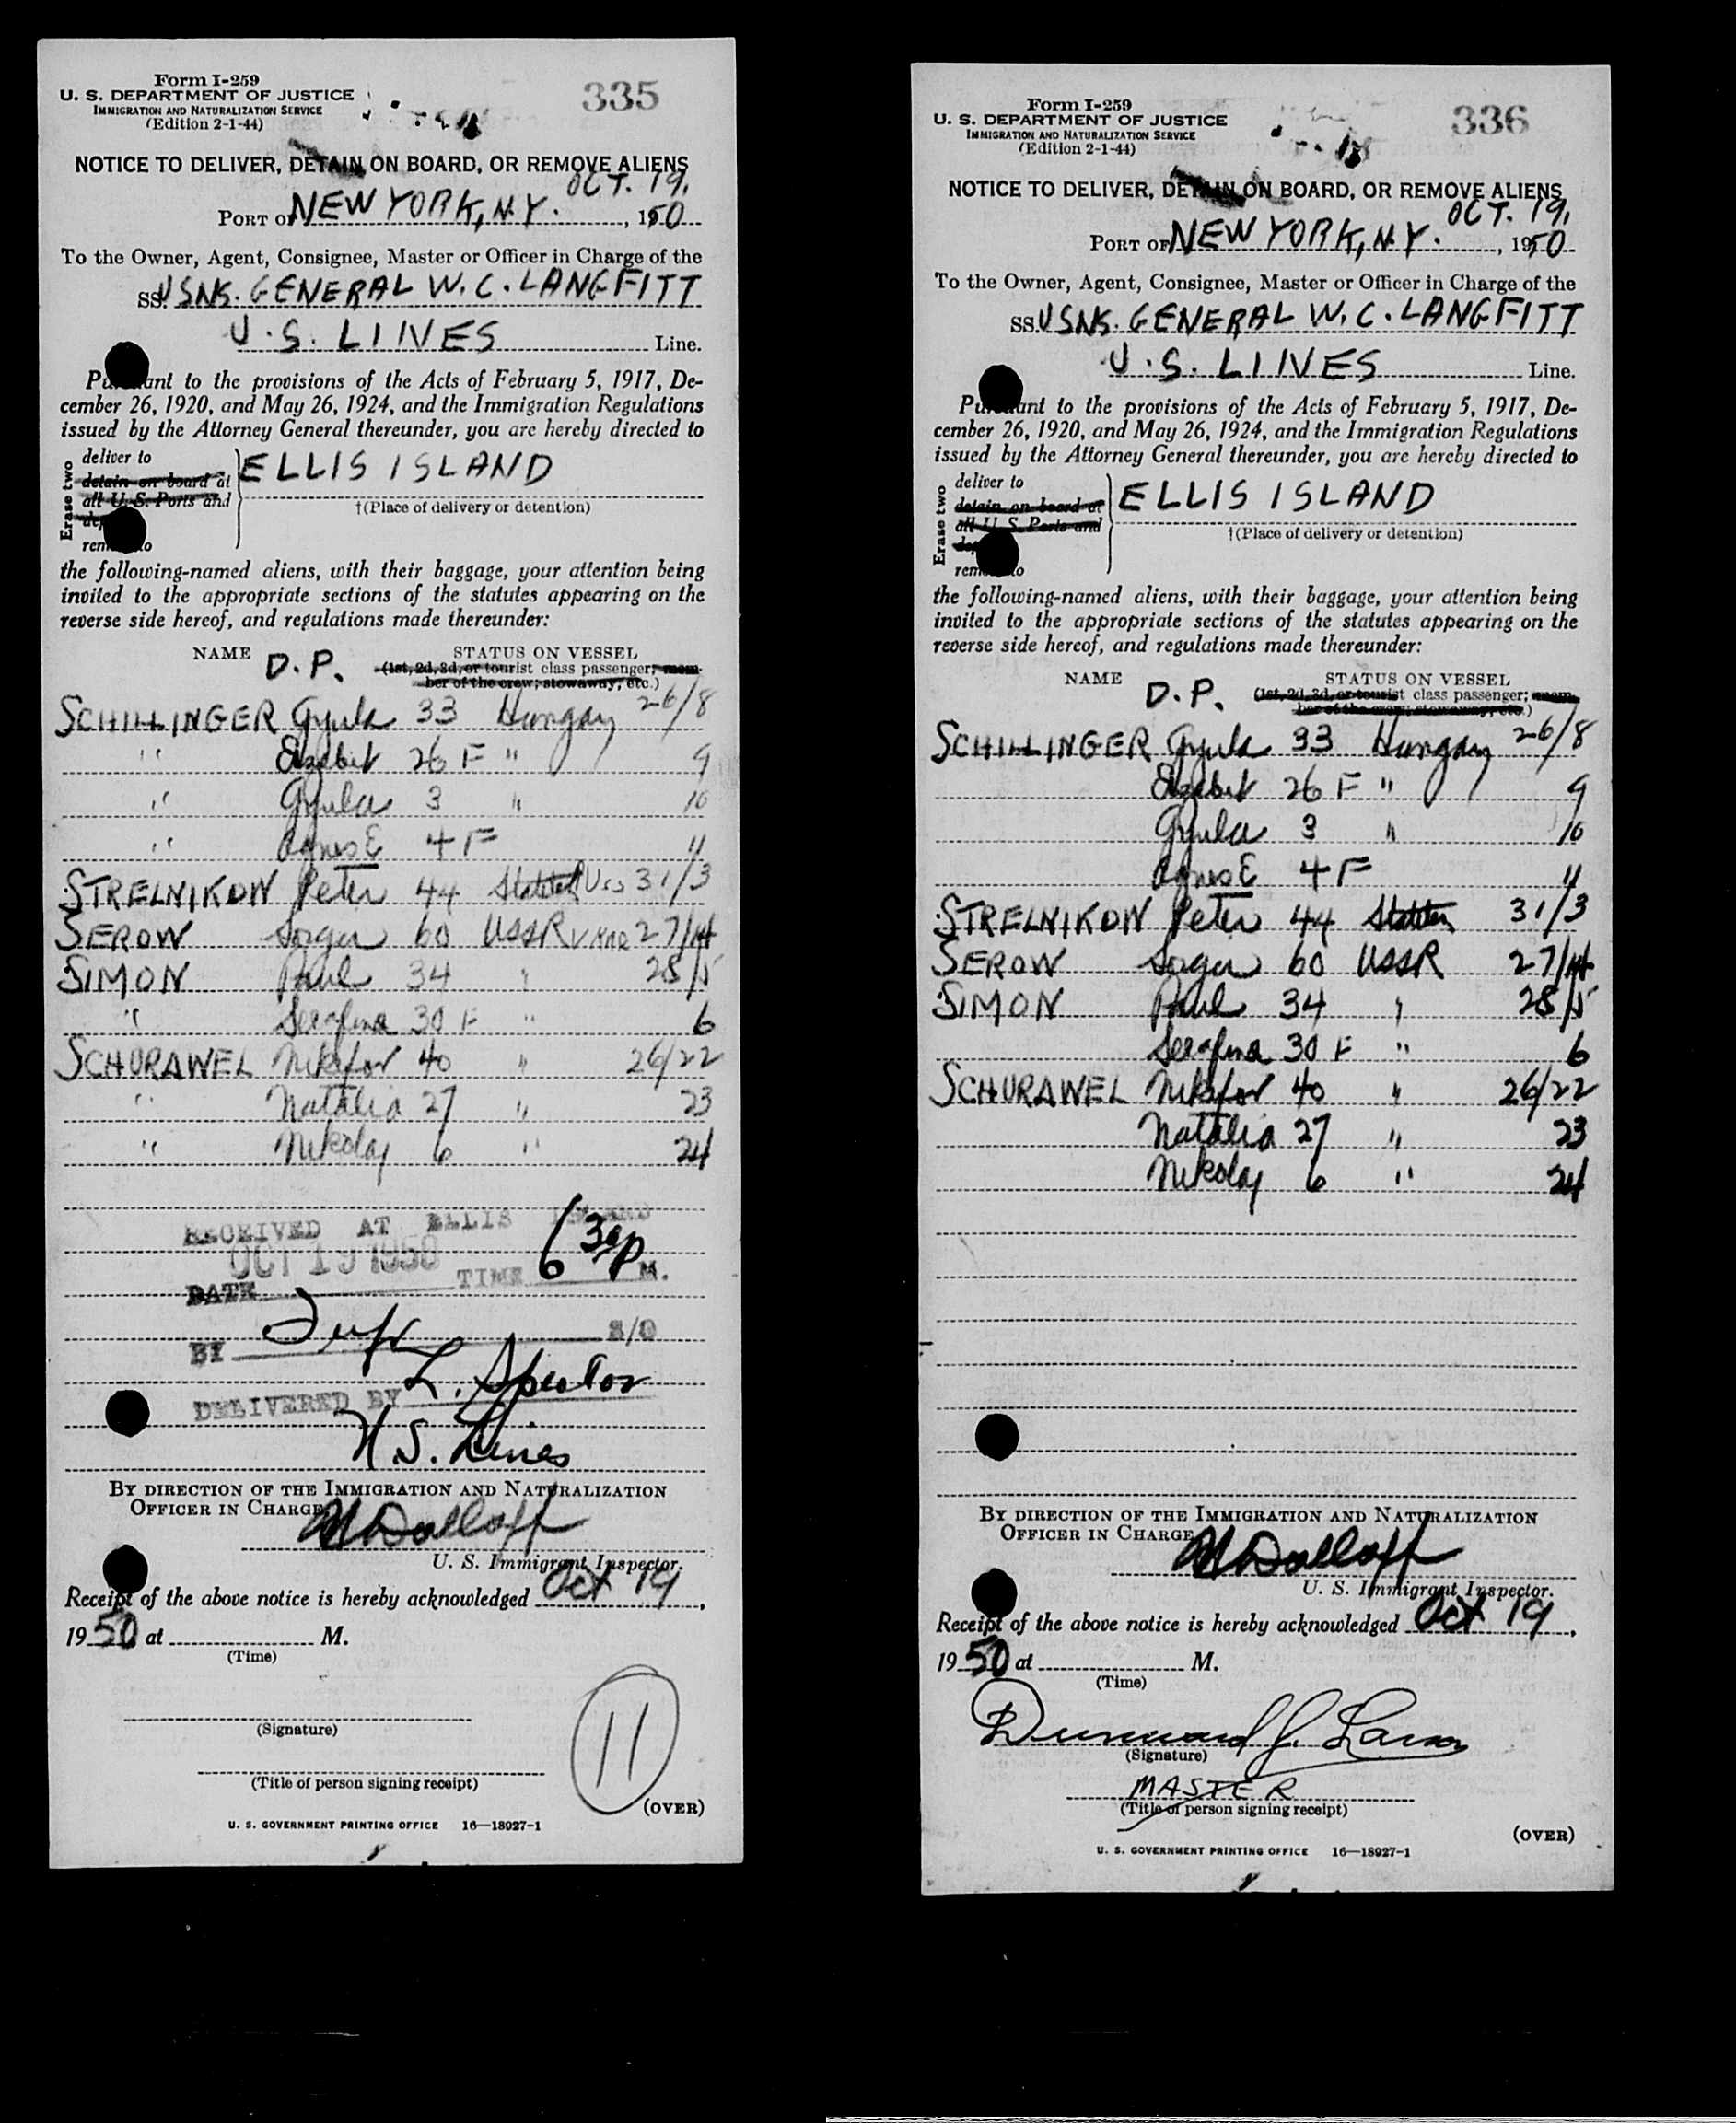 Form I-259
U. S. DEPARTMENT OF JUSTICE
IMMIGRATION AND NATURALIZATION SERVICE
(Edition 2-1-44)
335
NOTICE TO DELIVER, DETAIN ON BOARD, OR REMOVE ALIENS
OCT. 19,
PORT OF NEW YORK, N.Y. , 1950
To the Owner, Agent, Consignee, Master or Officer in Charge of the
SS. USNS. GENERAL W. C. LANGFITT
U.S. LINES Line.
Pursuant to the provisions of the Acts of February 5, 1917, De-
cember 26, 1920, and May 26, 1924, and the Immigration Regulations
issued by the Attorney General thereunder, you are hereby directed to
Erase two
deliver to
detain on board at
all U. S. Ports and
remove to
ELLIS ISLAND
†(Place of delivery or detention)
the following-named aliens, with their baggage, your attention being
invited to the appropriate sections of the statutes appearing on the
reverse side hereof, and regulations made thereunder:
NAME D.P. STATUS ON VESSEL
(1st, 2d, 3d, or tourist class passenger; mem-
ber of the crew; stowaway, etc.)
SCHILLINGER Gyula 33 Hungary 26/8
" Erzebet 26 F " 9
" Gyula 3 " 10
" Agnes E 4 F 11
STRELNIKOW Peter 44 31/3
SEROW 60 USSR 27/14
SIMON Paul 34 " 28/5
" Serafina 30 F " 6
SCHURAWEL Nikifor 40 " 26/22
" Natalia 27 " 23
" Nikolaj 6 " 24
RECEIVED AT ELLIS ISLAND
OCT 19 1950
DATE TIME 6 30 P M.
BY
DELIVERED BY L. Spector
U.S. Lines
BY DIRECTION OF THE IMMIGRATION AND NATURALIZATION
OFFICER IN CHARGE
U. S. Immigrant Inspector.
Receipt of the above notice is hereby acknowledged Oct 19,
1950 at M.
(Time)
(Signature)
11
(Title of person signing receipt)
(OVER)
U. S. GOVERNMENT PRINTING OFFICE 16—18027-1
Form I-259
U. S. DEPARTMENT OF JUSTICE
IMMIGRATION AND NATURALIZATION SERVICE
(Edition 2-1-44)
336
NOTICE TO DELIVER, DETAIN ON BOARD, OR REMOVE ALIENS
OCT. 19,
PORT OF NEW YORK, N.Y. , 1950
To the Owner, Agent, Consignee, Master or Officer in Charge of the
SS. USNS. GENERAL W. C. LANGFITT
U.S. LINES Line.
Pursuant to the provisions of the Acts of February 5, 1917, De-
cember 26, 1920, and May 26, 1924, and the Immigration Regulations
issued by the Attorney General thereunder, you are hereby directed to
Erase two
deliver to
detain on board at
all U. S. Ports and
remove to
ELLIS ISLAND
†(Place of delivery or detention)
the following-named aliens, with their baggage, your attention being
invited to the appropriate sections of the statutes appearing on the
reverse side hereof, and regulations made thereunder:
NAME D.P. STATUS ON VESSEL
(1st, 2d, 3d, or tourist class passenger; mem-
ber of the crew; stowaway, etc.)
SCHILLINGER Gyula 33 Hungary 26/8
Erzebet 26 F " 9
Gyula 3 " 10
Agnes E 4 F 11
STRELNIKOW Peter 44 31/3
SEROW 60 USSR 27/14
SIMON Paul 34 " 28/5
Serafina 30 F " 6
SCHURAWEL Nikifor 40 " 26/22
Natalia 27 " 23
Nikolaj 6 " 24
BY DIRECTION OF THE IMMIGRATION AND NATURALIZATION
OFFICER IN CHARGE
U. S. Immigrant Inspector.
Receipt of the above notice is hereby acknowledged Oct 19,
1950 at M.
(Time)
(Signature)
MASTER
(Title of person signing receipt)
(OVER)
U. S. GOVERNMENT PRINTING OFFICE 16—18027-1